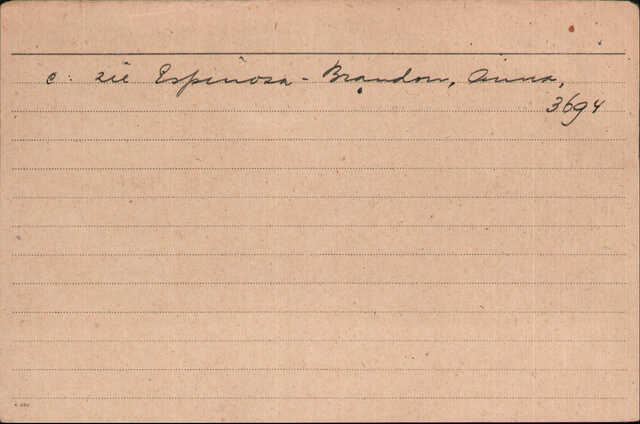 c: zie Espinosa - Brandon, Anna,
3694